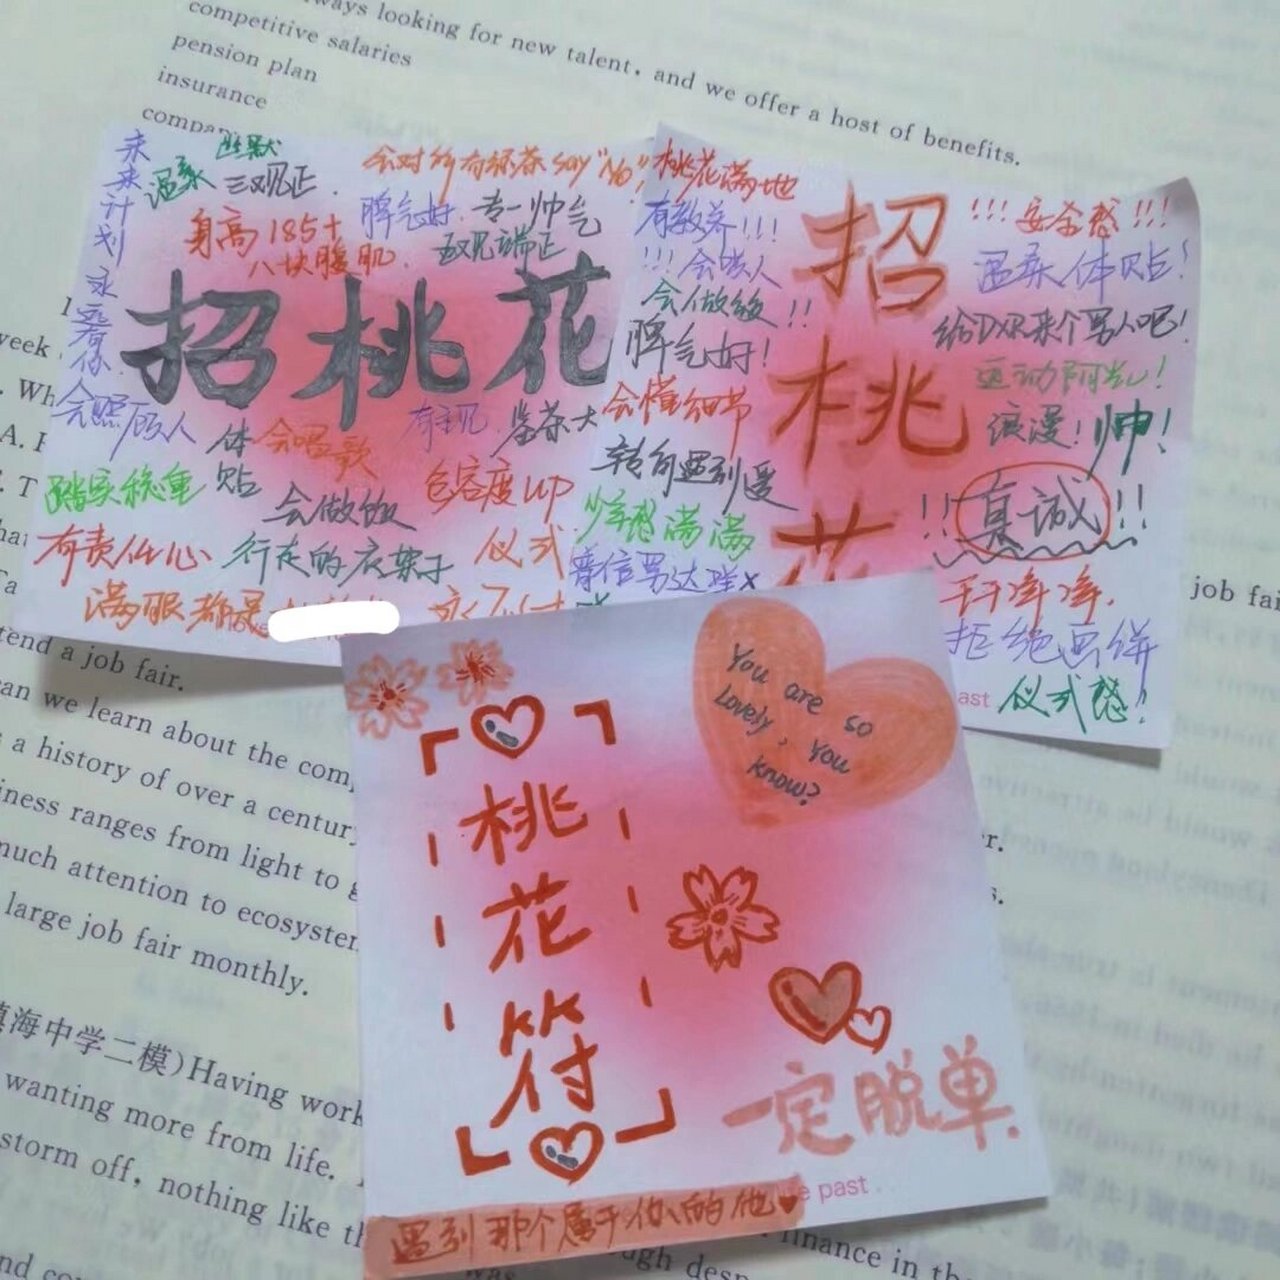 ways looking for new talent, and we offer a host of benefits.
competitive salaries
pension plan
insurance
未来计划永远有你
幽默
温柔
三观正.
会对所有绿茶say "No"!
身高185+
八块腹肌.
脾气好.
专一帅气
五观端正
招桃花
会照顾人
体贴
会唱歌
有主见.
鉴茶大
踏实稳重
会做饭
包容度up
有责任心
行走的衣架子
仪式
满眼都是
桃花满地
有教养!!!
!!!会哄人
会做饭!!
脾气好!
会懂细节
转角遇到爱
少年感满满
招桃花
!!!安全感!!!
温柔体贴!
给DXR来个男人吧!
运动阳光!
浪漫!帅!
!!真诚!!
干干净净.
拒绝画饼
仪式感!
ast
You are so
lovely, you
know?
桃花符
一定脱单.
e past
遇到那个属于你的他
week
A. I
tend a job fair.
can we learn about the com
s a history of over a century
iness ranges from light to g
much attention to ecosyster
large job fair monthly.
镇海中学二模)Having work
wanting more from life.
storm off, nothing like th
job fai
finance in the
ugh desp
was